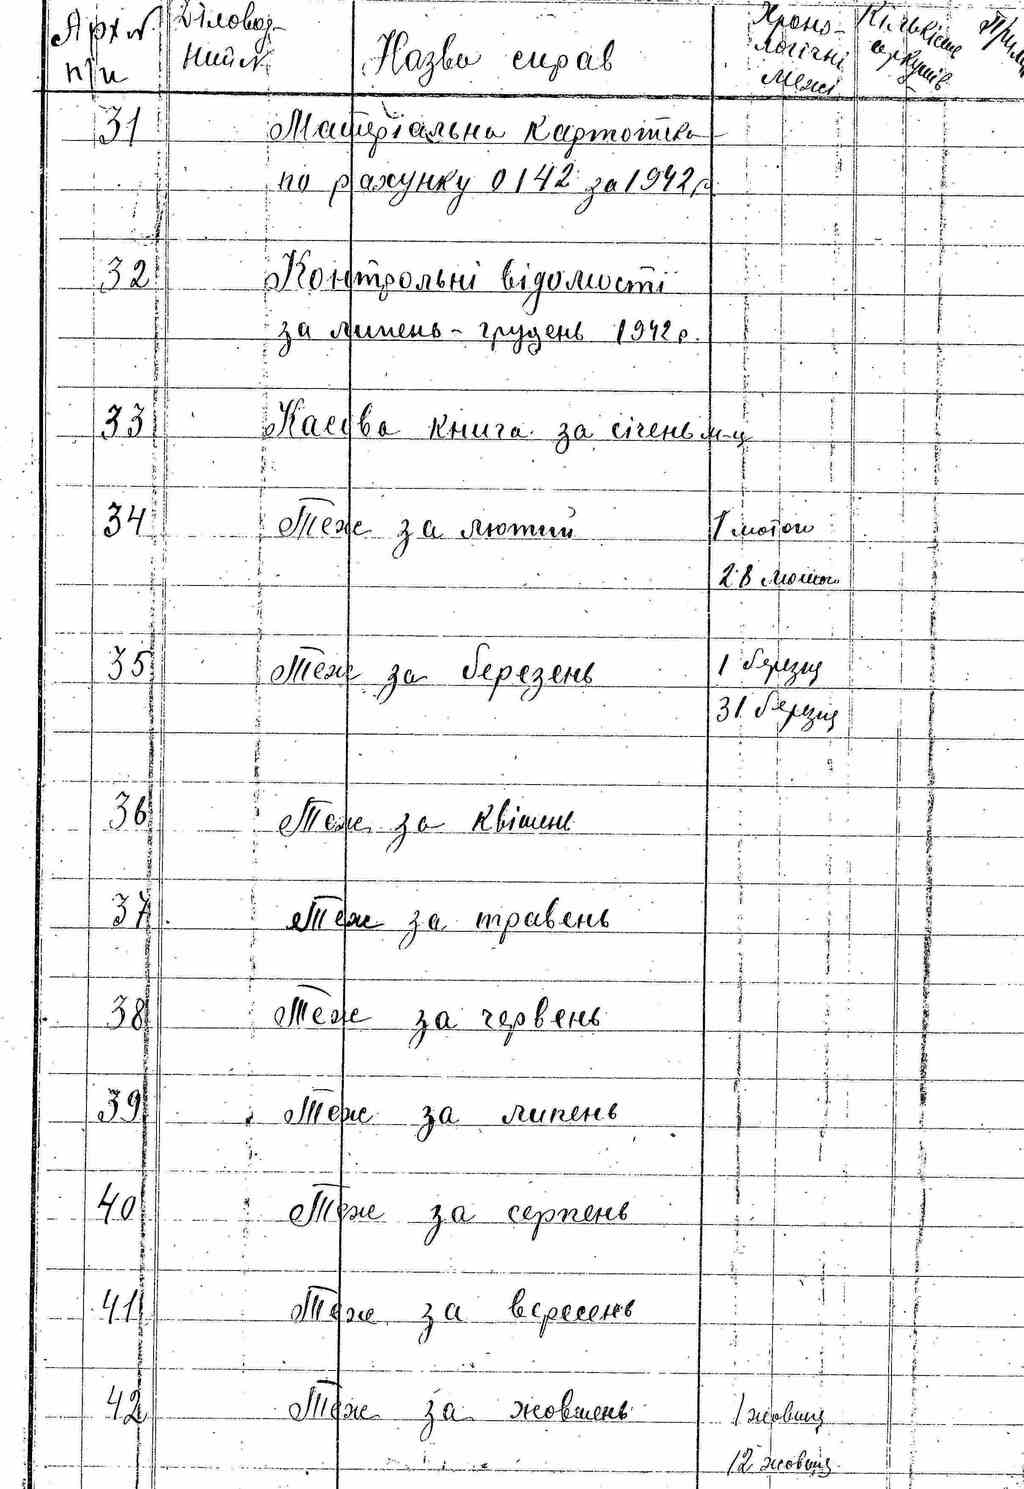 Арх № п/п
Діловод-
ний №
Назва справ
Хроно-
логічні
межі
Кількість
аркушів
31 Матеріальна картотека
по рахунку 0142 за 1942 р.
32 Контрольні відомості
за липень - грудень 1942 р.
33 Касова книга за січень м-ц
34 Теж за лютий 1 лютого
28 лютого
35 Теж за березень 1 березня
31 березня
36 Теж за квітень
37 Теж за травень
38 Теж за червень
39 Теж за липень
40 Теж за серпень
41 Теж за вересень
42 Теж за жовтень 1 жовтня
12 жовтня